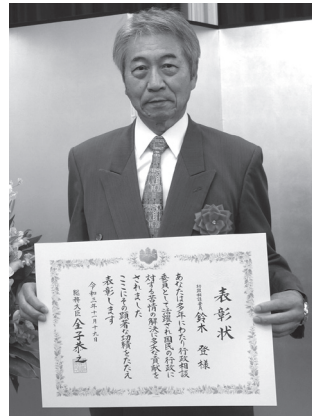 表彰状
行政相談委員
鈴木 登 様
あなたは多年にわたり行政相談
委員として活躍され国民の行政に
対する苦情の解決に多大な貢献を
されました
ここにその顕著な功績をたたえ
表彰します
令和三年十一月十九日
総務大臣 金子恭之